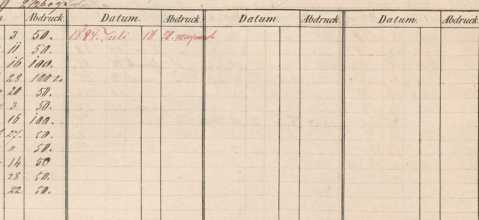 Abdruck. Datum. Abdruck. Datum. Abdruck. Datum. Abdruck.
3 50. 1894. Juli 18
11 50.
16 100.
28 100
20 50.
3 50.
16 100.
27. 50.
11 50.
14 50
28 50.
22 50.